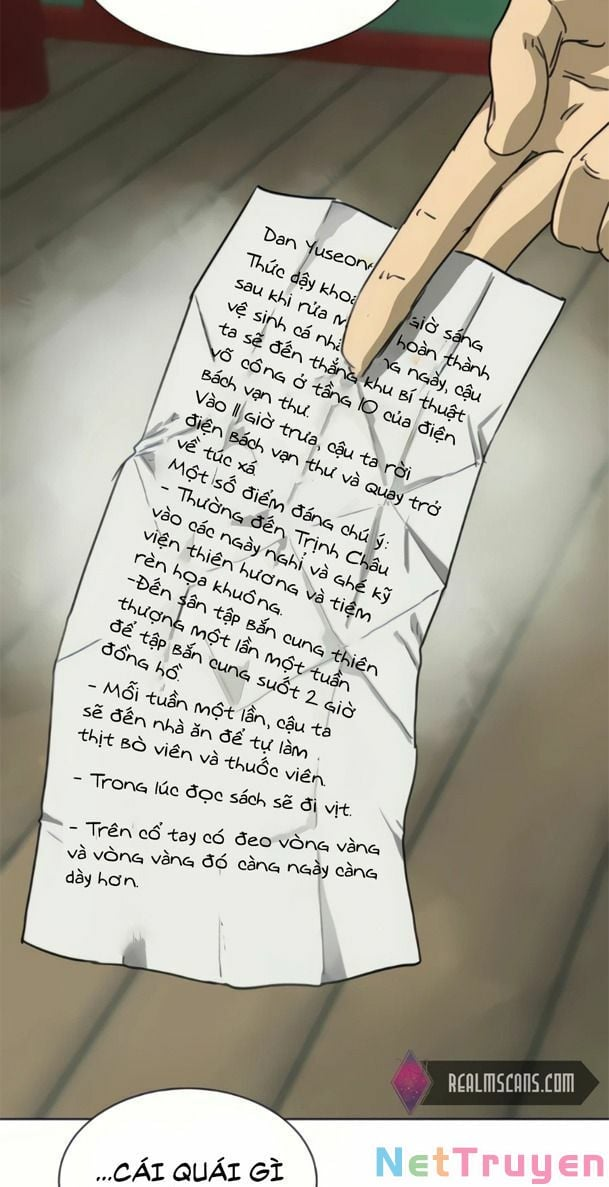 Dan Yuseong
Thức dậy giờ sáng
sau khi rửa hoàn thành
vệ sinh cá ngày, cậu
ta sẽ đến thẳng khu bí thuật
võ công ở tầng 10 của điện
Bách vạn thư.
Vào 11 giờ trưa, cậu ta rời
điện Bách vạn thư và quay trở
về túc xá
Một số điểm đáng chú ý:
- Thường đến Trịnh Châu
vào các ngày nghỉ và ghé kỹ
viện thiên hương và tiệm
rèn họa khuông.
-Đến sân tập bắn cung thiên
thượng một lần một tuần
để tập bắn cung suốt 2 giờ
đồng hồ.
- Mỗi tuần một lần, cậu ta
sẽ đến nhà ăn để tự làm
thịt bò viên và thuốc viên.
- Trong lúc đọc sách sẽ đi vịt.
- Trên cổ tay có đeo vòng vàng
và vòng vàng đó càng ngày càng
dày hơn.
REALMSCANS.COM
NetTruyen
...CÁI QUÁI GÌ